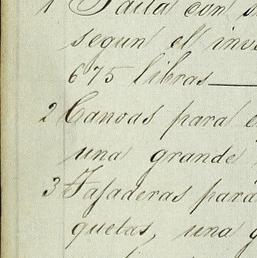 1 Paila con
segun el inv
675 libras
2 Canoas para
una grande
3 Tajaderas para
quetas, una g